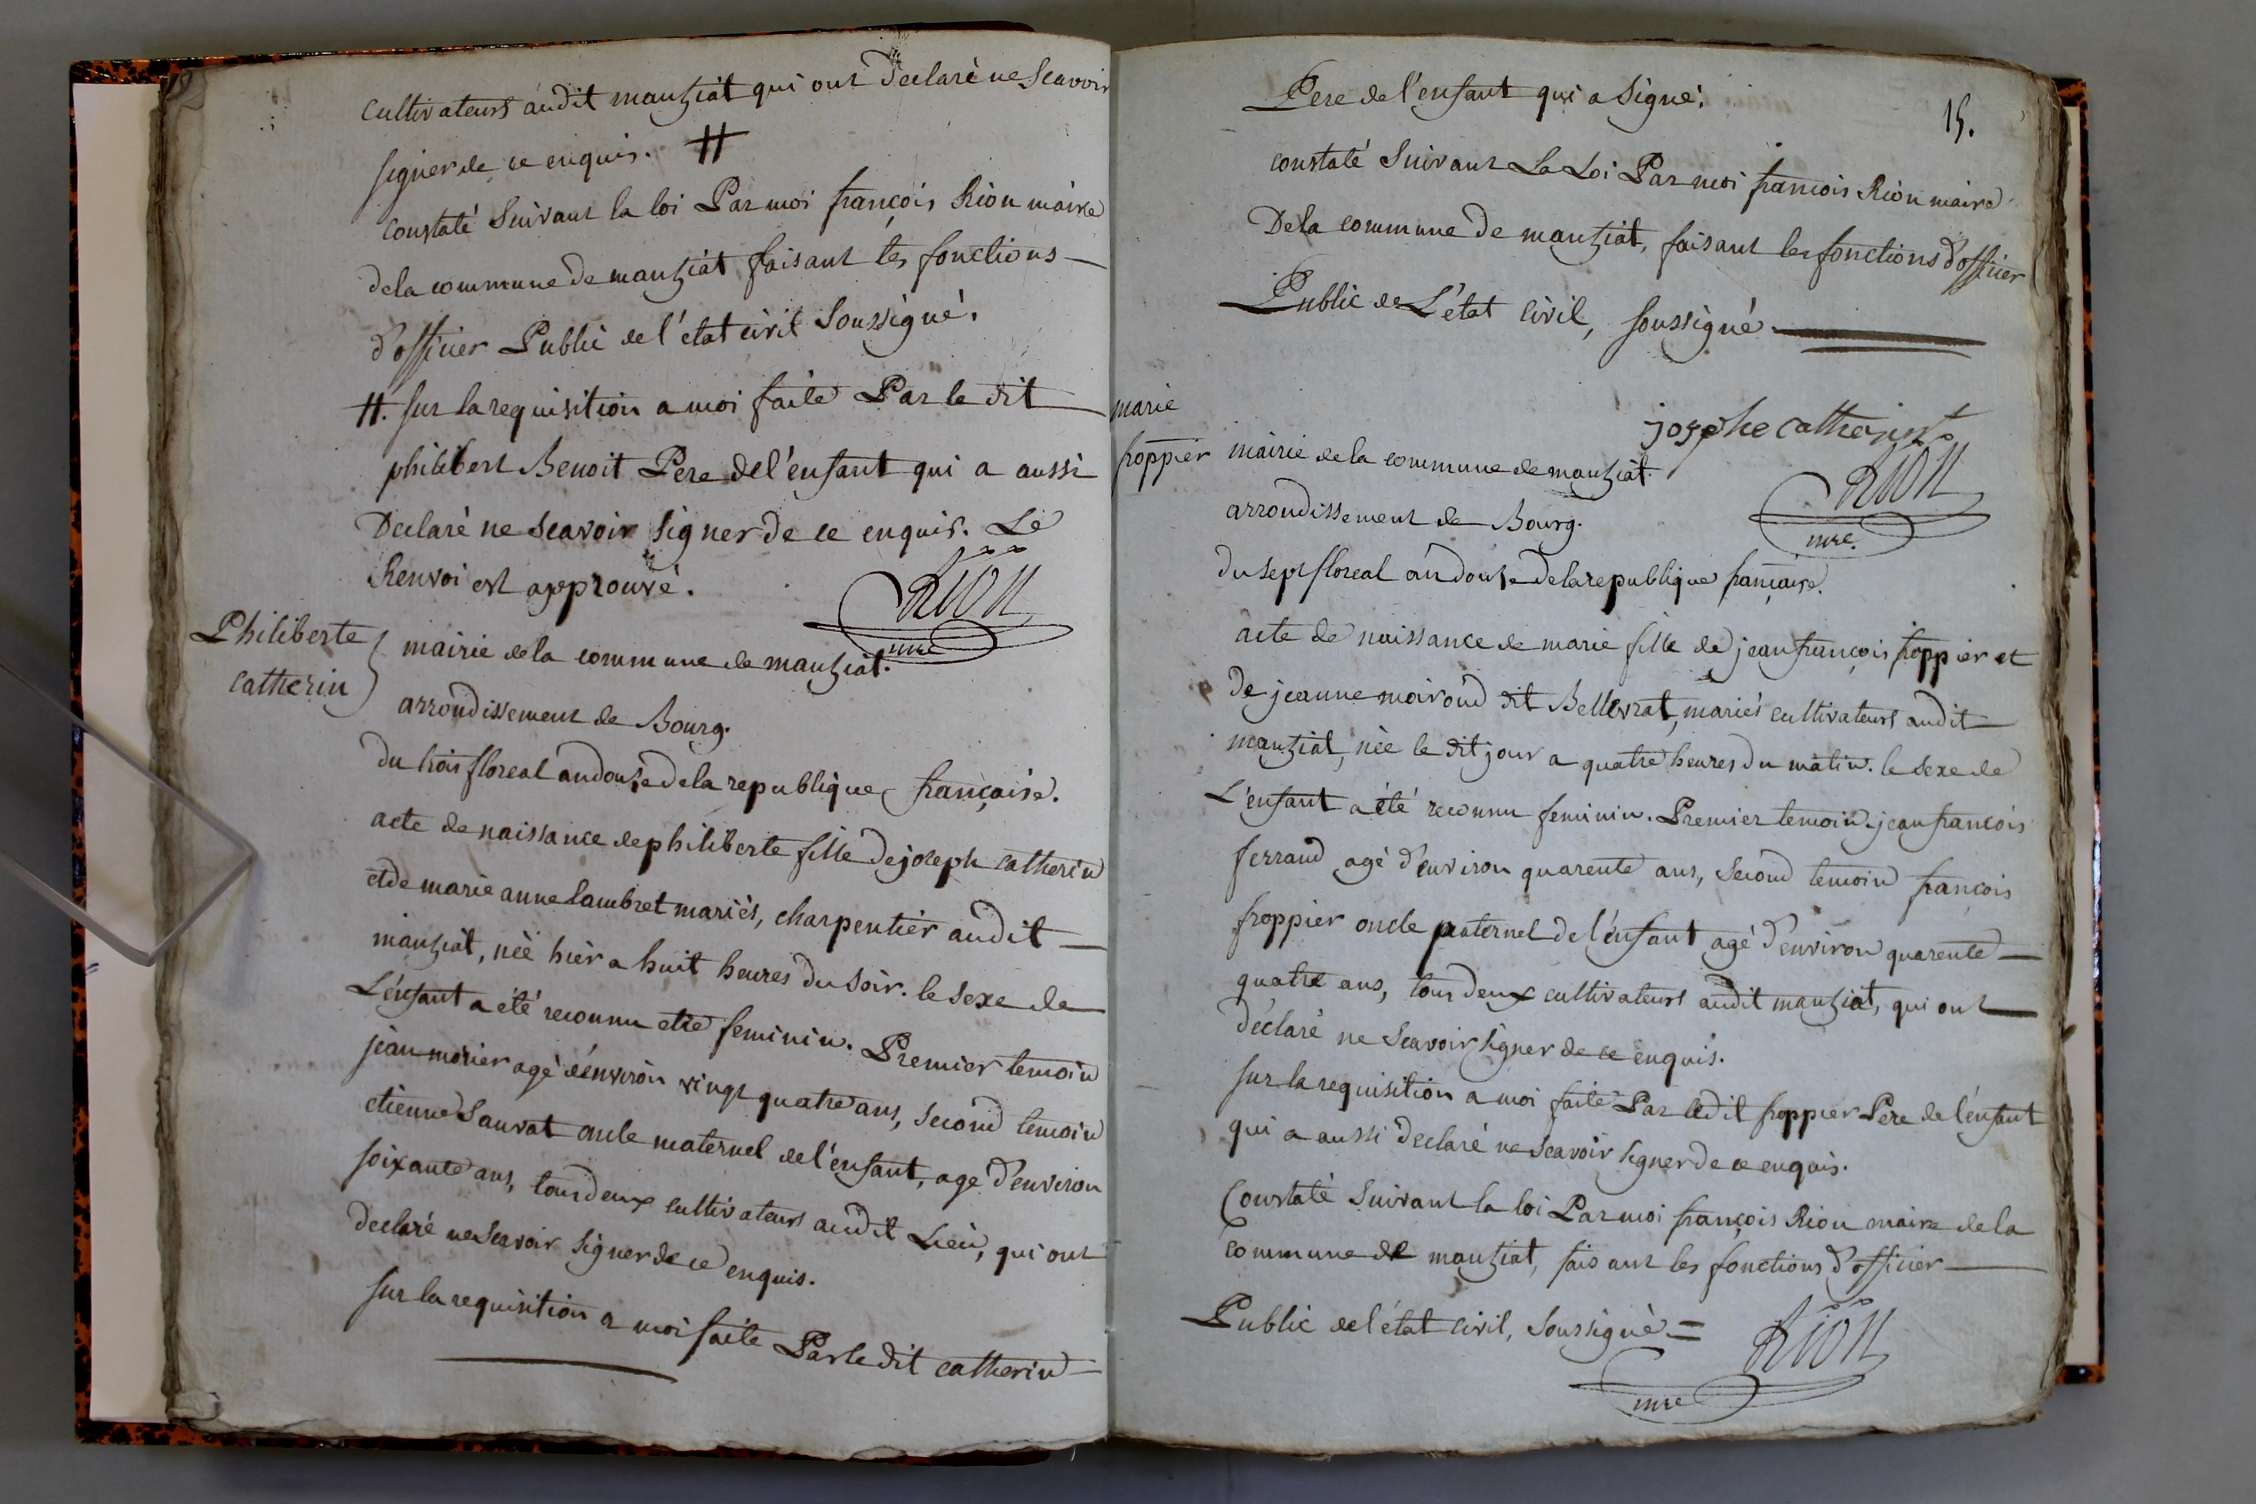 cultivateurs audit mantziat qui ont declaré ne scavoir
signer de ce enquis. #
constaté suivant la loi Par moi françois Rion maire
de la commune de mantziat faisant les fonctions
d'officier Public de l'état civil soussigné.
#. sur la requisition a moi faite Par le dit
philibert Benoit Pere de l'enfant qui a aussi
Declaré ne scavoir signer de ce enquis. Le
Renvoi est approuvé.
Riön
mre
Philiberte
catherin
mairie de la commune de mantziat.
arrondissement de Bourg.
du trois floreal an douze de la republique française.
acte de naissance de philiberte fille de joseph catherin
et de marie anne Lambret mariés, charpentier audit
mantziat, néé hier a huit heures du soir. le sexe de
L'enfant a été reconnu etre feminin. Premier temoin
jean morier agé d'environ vingt quatre ans, second temoin
etienne Sauvat oncle maternel de l'enfant, agé d'environ
soixante ans, tous deux cultivateurs audit Lieu, qui ont
declaré ne scavoir signer de ce enquis.
sur la requisition a moi faite Par le dit catherin
15.
Pere de l'enfant qui a signé.
constaté suivant La Loi Par moi francois Rion maire
De la commune de mantziat, faisant les fonctions d'officier
Public de L'état civil, soussigné
josephe catherin
Riön
mre.
marie
froppier
mairie de la commune de mantziat.
arrondissement de Bourg.
du sept floreal an douze de la republique française.
acte de naissance de marie fille de jean françois froppier et
de jeanne moiroud dit Bellevrat, mariés cultivateurs audit
mantziat, née le dit jour a quatre heures du matin. le sexe de
L'enfant a été reconnu feminin. Premier temoin jean francois
ferrand agé d'environ quarente ans, second temoin françois
froppier oncle paternel de l'enfant agé d'environ quarente
quatre ans, tous deux cultivateurs audit mantziat, qui ont
déclaré ne scavoir signer de ce enquis.
sur la requisition a moi faite Par ledit froppier Pere de l'enfant
qui a aussi declaré ne scavoir signer de ce enquis.
Constaté suivant la loi Par moi françois Rion maire de la
commune de mantziat, faisant les fonctions d'officier
Public de l'état civil, soussigné =
Riön
mre